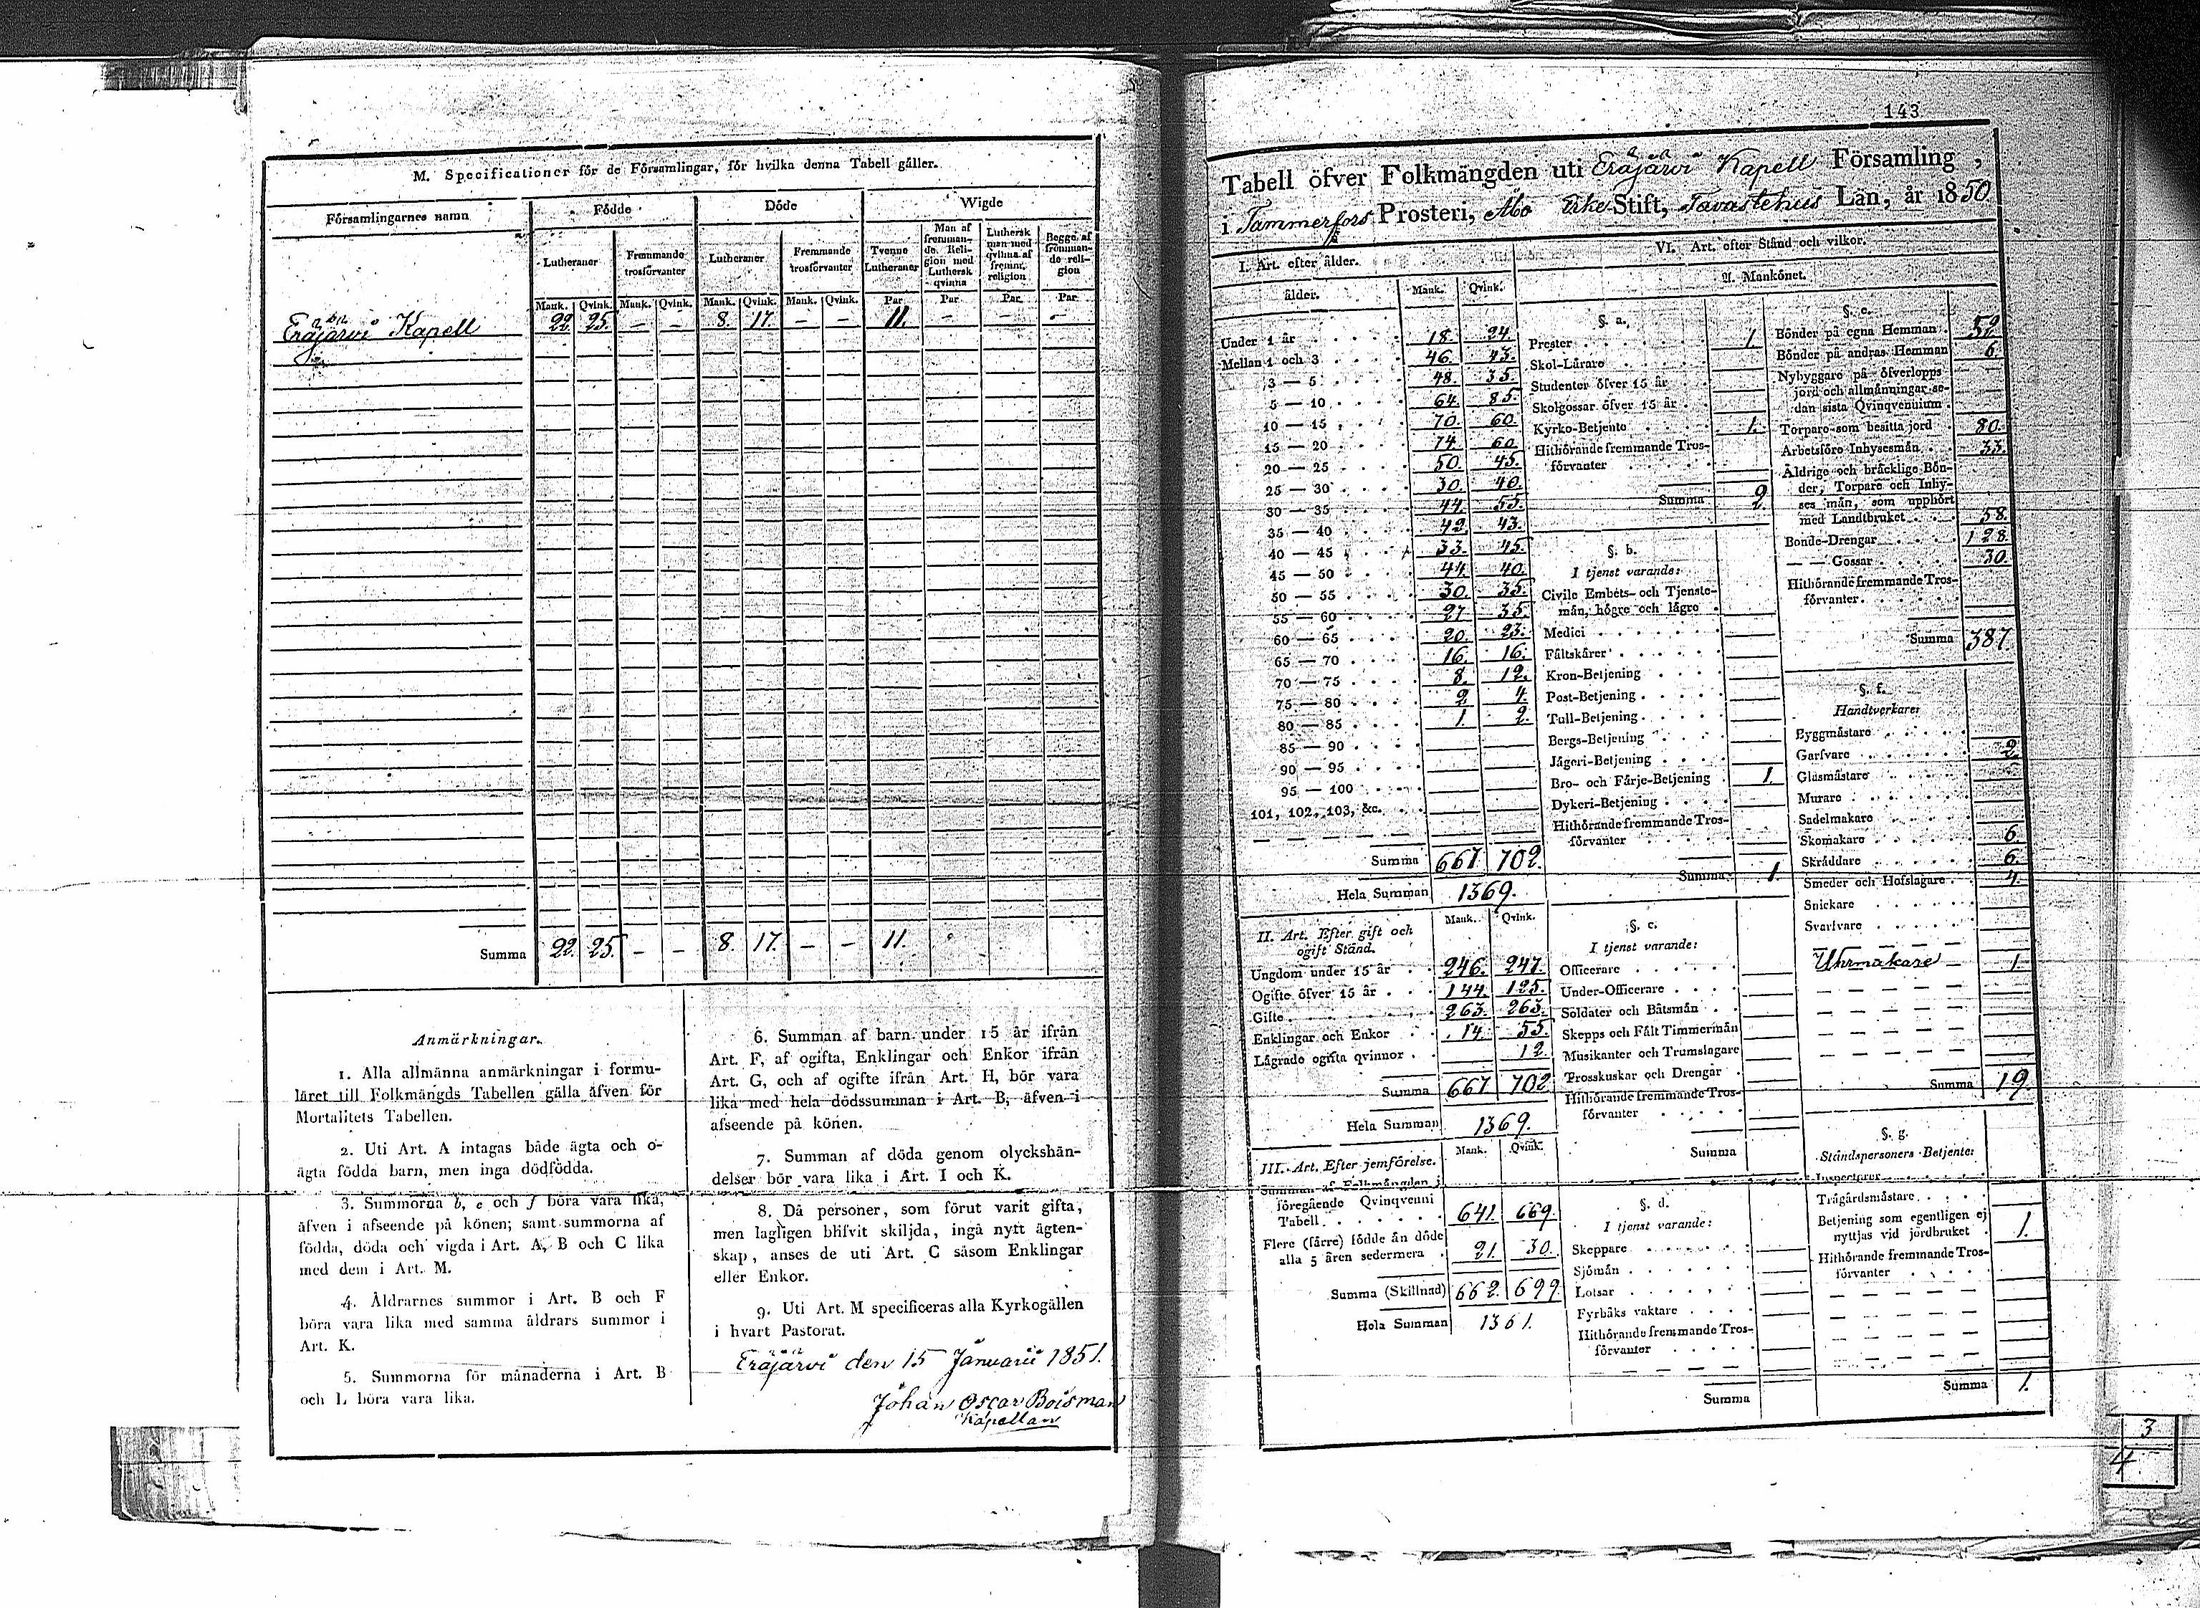 M. Specificationer för de Församlingar, för hvilka denna Tabell gäller.
Församlingarnes namn
Födde
Döde
Wigde
Lutheraner
Fremmande trosförvanter
Lutheraner
Fremmande trosförvanter
Tvenne Lutheraner
Man af fremmande Religion med Luthersk qvinna
Luthersk man med qvinna af fremm. religion
Begge af fremmande religion
Mank. Qvink. Mank. Qvink. Mank. Qvink. Mank. Qvink. Par Par Par Par
Eräjärvi Kapell 22. 25. — — 8. 17. — — 11. — — —
Summa 22. 25. — — 8. 17. — — 11.
Anmärkningar.
1. Alla allmänna anmärkningar i formu-
läret till Folkmängds Tabellen gälla äfven för
Mortalitets Tabellen.
2. Uti Art. A intagas både ägta och o-
ägta födda barn, men inga dödfödda.
3. Summorna b, e och f böra vara lika,
äfven i afseende på könen; samt summorna af
födda, döda och vigda i Art. A, B och C lika
med dem i Art. M.
4. Åldrarnes summor i Art. B och F
böra vara lika med samma åldrars summor i
Art. K.
5. Summorna för månaderna i Art. B
och L böra vara lika.
6. Summan af barn under 15 år ifrån
Art. F, af ogifta, Enklingar och Enkor ifrån
Art. G, och af ogifte ifrån Art. H, bör vara
lika med hela dödssumman i Art. B, äfven i
afseende på könen.
7. Summan af döda genom olyckshän-
delser bör vara lika i Art. I och K.
8. Då personer, som förut varit gifta,
men lagligen blifvit skiljda, ingå nytt ägten-
skap, anses de uti Art. C såsom Enklingar
eller Enkor.
9. Uti Art. M specificeras alla Kyrkogällen
i hvart Pastorat.
Eräjärvi den 15 Januarii 1851.
Johan Oscar Boisman
Kapellan
143
Tabell öfver Folkmängden uti Eräjärvi Kapell Församling,
i Tammerfors Prosteri, Åbo Erke Stift, Tavastehus Län, år 1850
I. Art. efter ålder.
ålder. Mank. Qvink.
Under 1 år 18. 24.
Mellan 1 och 3 46. 43.
3 — 5 48. 35.
5 — 10 64. 85.
10 — 15 70. 60.
15 — 20 74. 60.
20 — 25 50. 45.
25 — 30 30. 40.
30 — 35 44. 55.
35 — 40 42. 43.
40 — 45 33. 45.
45 — 50 44. 40.
50 — 55 30. 35.
55 — 60 27. 35.
60 — 65 20. 23.
65 — 70 16. 16.
70 — 75 8. 12.
75 — 80 2. 4.
80 — 85 1. 2.
85 — 90
90 — 95
95 — 100
101, 102, 103, &c.
Summa 667 702.
Hela Summan 1369.
II. Art. Efter gift och
ogift Stånd.
Mank. Qvink.
Ungdom under 15 år 246. 247.
Ogifte öfver 15 år 144. 125.
Gifte 263. 263.
Enklingar och Enkor 14. 55.
Lägrade ogifta qvinnor 12.
Summa 667 702
Hela Summan 1369.
III. Art. Efter jemförelse.
Mank. Qvink.
Summan af Folkmängden i
föregående Qvinqvenni
Tabell 641. 669.
Flere (färre) födde än döde
alla 5 åren sedermera 21. 30.
Summa (Skillnad) 662. 699.
Hela Summan 1361.
VI. Art. efter Stånd och vilkor.
A. Mankönet.
§. a.
Prester 1.
Skol-Lärare
Studenter öfver 15 år
Skolgossar öfver 15 år
Kyrko-Betjente 1.
Hithörande fremmande Tros-
förvanter
Summa 2.
§. b.
I tjenst varande:
Civile Embets- och Tjenste-
män, högre och lägre
Medici
Fältskärer
Kron-Betjening
Post-Betjening
Tull-Betjening
Bergs-Betjening
Jägeri-Betjening
Bro- och Färje-Betjening 1.
Dykeri-Betjening
Hithörande fremmande Tros-
förvanter
Summa 1.
§. c.
I tjenst varande:
Officerare
Under-Officerare
Soldater och Båtsmän
Skepps och Fält Timmermän
Musikanter och Trumslagare
Trosskuskar och Drengar
Hithörande fremmande Tros-
förvanter
Summa
§. d.
I tjenst varande:
Skeppare
Sjömän
Lotsar
Fyrbåks vaktare
Hithörande fremmande Tros-
förvanter
Summa
§. e.
Bönder på egna Hemman 52.
Bönder på andras Hemman 6.
Nybyggare på öfverlopps
jord och allmänningar se-
dan sista Qvinqvenuium
Torpare som besitta jord 80.
Arbetsföre Inhysesmän 33.
Åldrige och bräcklige Bön-
der, Torpare och Inhy-
ses män, som upphört
med Landtbruket 58.
Bonde-Drengar 128.
— — Gossar 30.
Hithörande fremmande Tros-
förvanter
Summa 387.
§. f.
Handtverkare:
Byggmästare
Garfvare 2.
Glasmästare
Murare
Sadelmakare
Skomakare 6.
Skräddare 6.
Smeder och Hofslagare 4.
Snickare
Svarfvare
Uhrmakare 1.
Summa 19.
§. g.
Ståndspersoners Betjente:
Inspectorer
Trägårdsmästare
Betjening som egentligen ej
nyttjas vid jordbruket 1.
Hithörande fremmande Tros-
förvanter
Summa 1.
3
4